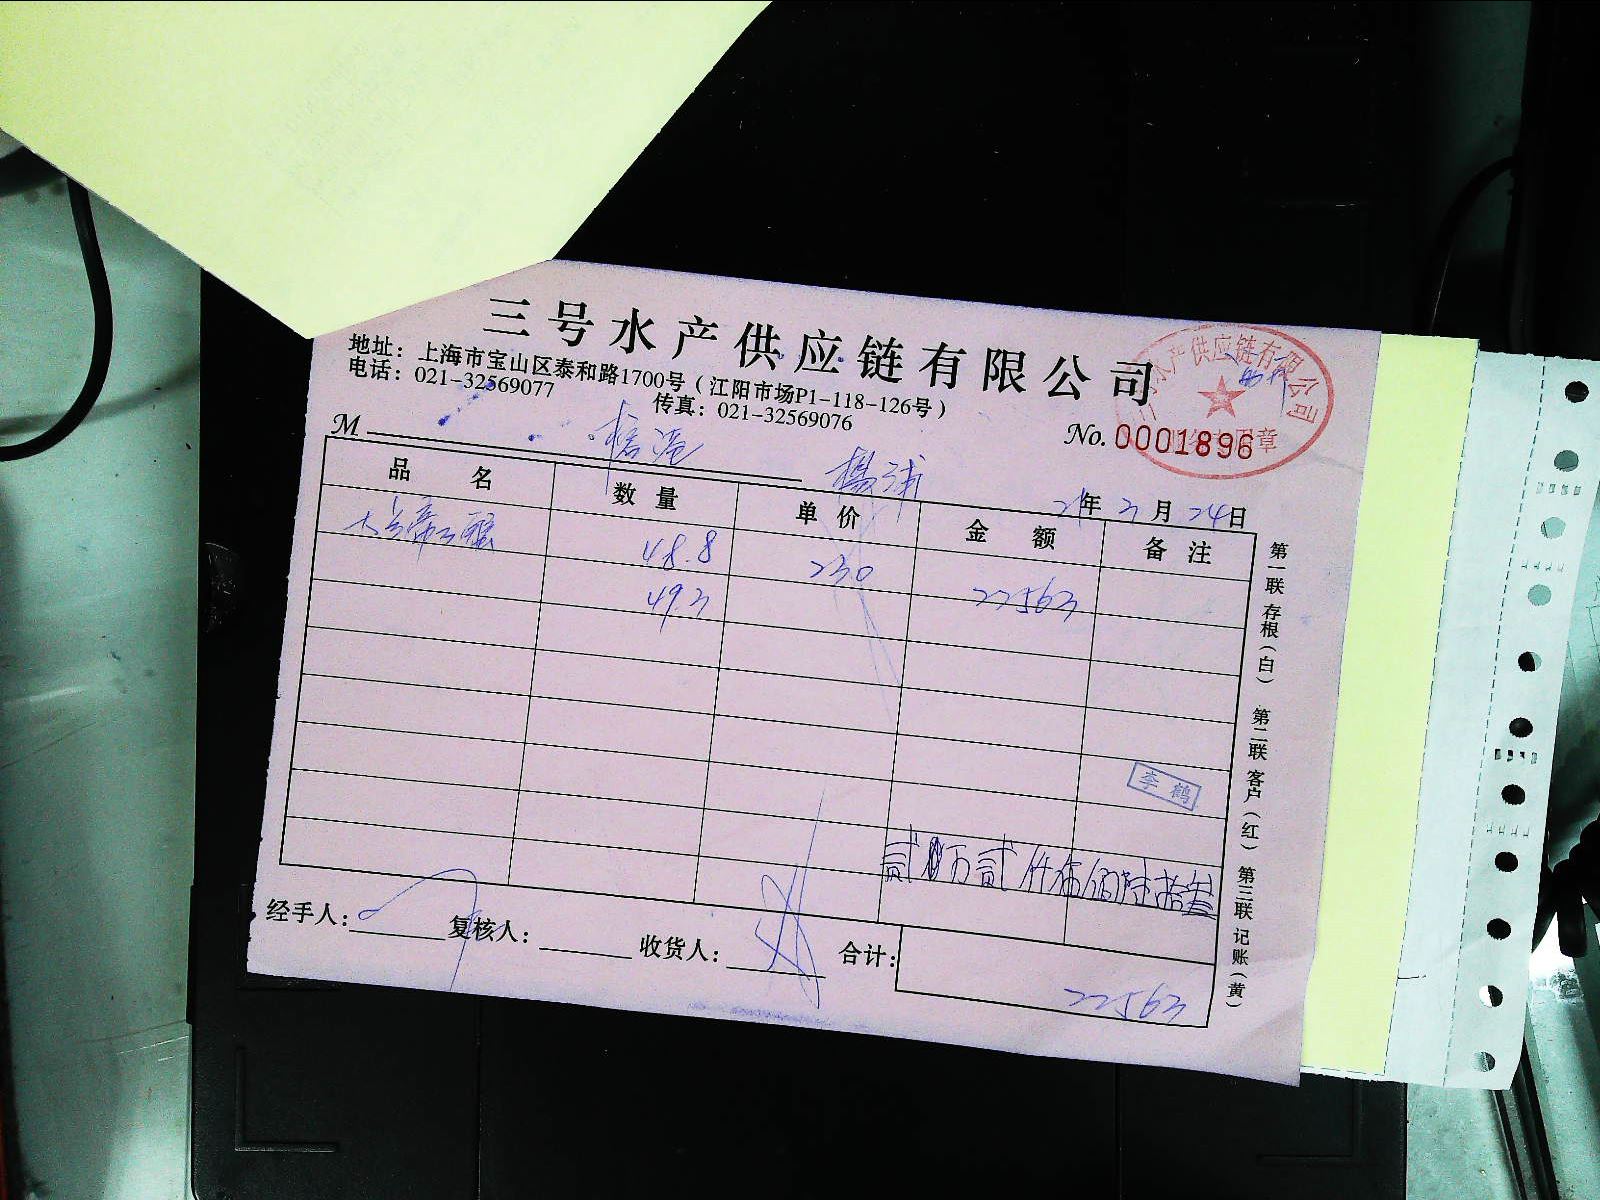 三号水产供应链有限公司
地址：上海市宝山区泰和路1700号（江阳市场P1-118-126号）
电话：021-32569077
传真：021-32569076
水产供应链有限公司
用章
M
No. 0001896
杨浦
21年3月24日
品名 数量 单价 金额 备注
48.8 230 22563
49.3
李鹤
贰万贰仟伍佰陆拾叁
经手人： 复核人： 收货人： 合计：
22563
第一联 存根（白） 第二联 客户（红） 第三联 记账（黄）